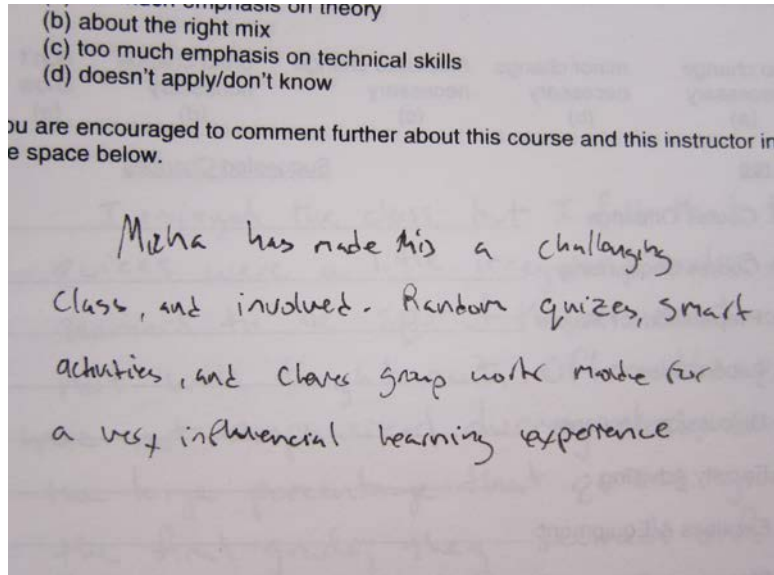 emphasis on theory
(b) about the right mix
(c) too much emphasis on technical skills
(d) doesn't apply/don't know
ou are encouraged to comment further about this course and this instructor in
e space below.
Micha has made this a challanging
class, and involved. Random quizes, smart
activities, and group work made for
a very influencial learning experience